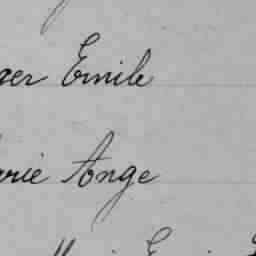 ger Emile
arie Ange